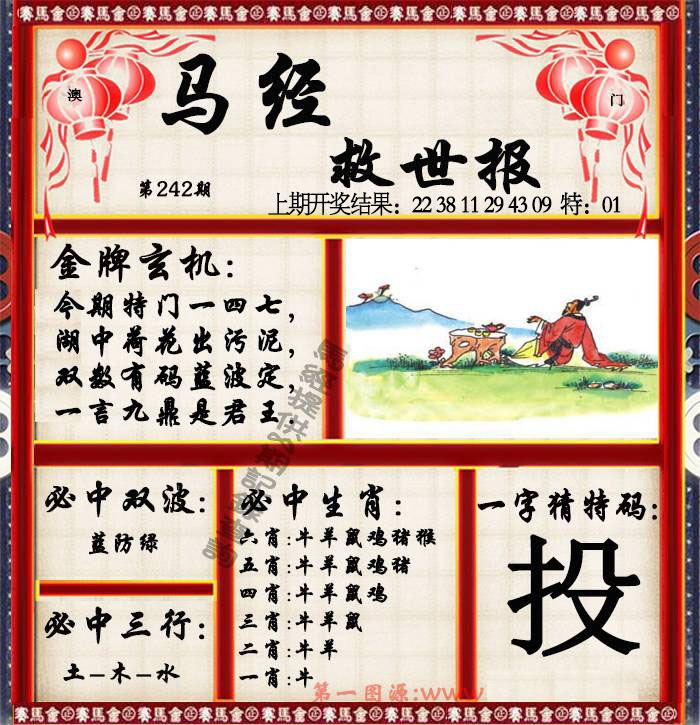 賽馬會賽馬會賽馬會賽馬會賽馬會賽馬會賽馬會
澳 门
马经
救世报
第242期
上期开奖结果:22 38 11 29 43 09 特:01
金牌玄机:
今期特门一四七,
湖中荷花出污泥,
双数有码蓝波定,
一言九鼎是君王.
必中双波:
蓝防绿
必中三行:
土-木-水
必中生肖:
六肖:牛羊鼠鸡猪猴
五肖:牛羊鼠鸡猪
四肖:牛羊鼠鸡
三肖:牛羊鼠
二肖:牛羊
一肖:牛
一字猜特码:
投
第一图源:www